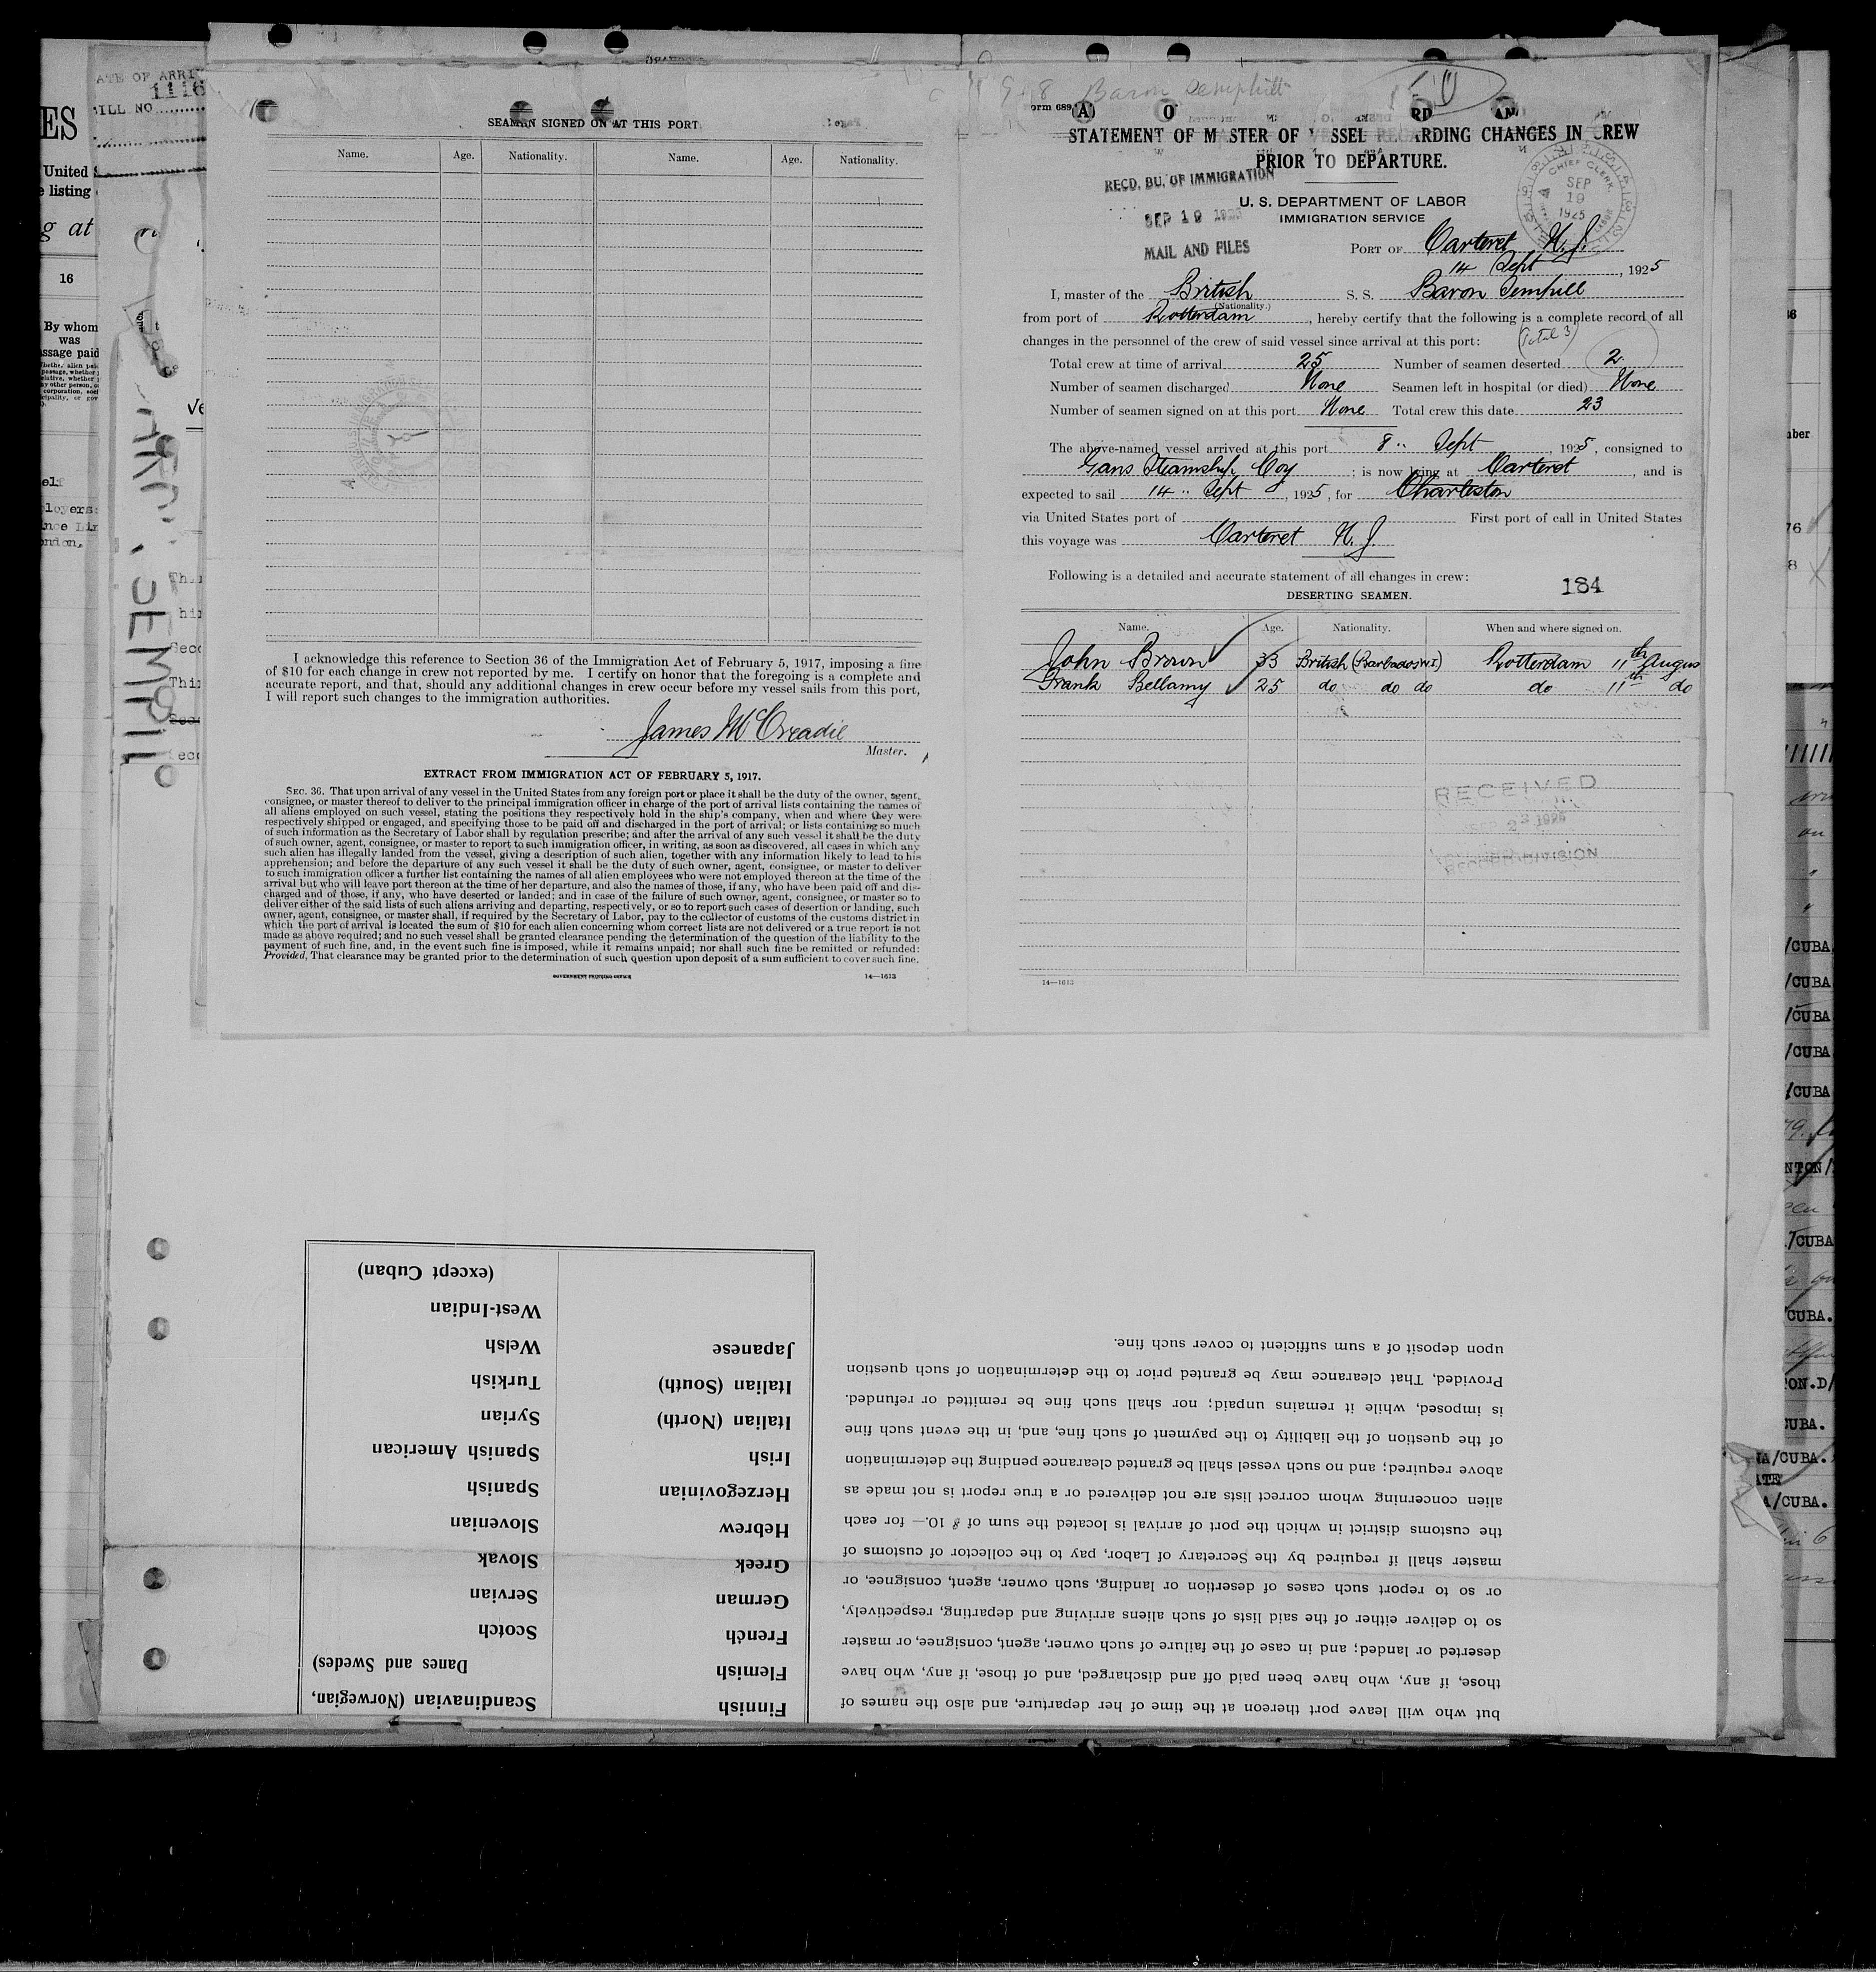 SEAMEN SIGNED ON AT THIS PORT
Name. Age. Nationality. Name. Age. Nationality.
I acknowledge this reference to Section 36 of the Immigration Act of February 5, 1917, imposing a fine
of $10 for each change in crew not reported by me. I certify on honor that the foregoing is a complete and
accurate report, and that, should any additional changes in crew occur before my vessel sails from this port,
I will report such changes to the immigration authorities.
James McCreadie
Master.
EXTRACT FROM IMMIGRATION ACT OF FEBRUARY 5, 1917.
SEC. 36. That upon arrival of any vessel in the United States from any foreign port or place it shall be the duty of the owner, agent,
consignee, or master thereof to deliver to the principal immigration officer in charge of the port of arrival lists containing the names of
all aliens employed on such vessel, stating the positions they respectively hold in the ship's company, when and where they were
respectively shipped or engaged, and specifying those to be paid off and discharged in the port of arrival; or lists containing so much
of such information as the Secretary of Labor shall by regulation prescribe; and after the arrival of any such vessel it shall be the duty
of such owner, agent, consignee, or master to report to such immigration officer, in writing, as soon as discovered, all cases in which any
such alien has illegally landed from the vessel, giving a description of such alien, together with any information likely to lead to his
apprehension; and before the departure of any such vessel it shall be the duty of such owner, agent, consignee, or master to deliver
to such immigration officer a further list containing the names of all alien employees who were not employed thereon at the time of the
arrival but who will leave port thereon at the time of her departure, and also the names of those, if any, who have been paid off and dis-
charged and of those, if any, who have deserted or landed; and in case of the failure of such owner, agent, consignee, or master so to
deliver either of the said lists of such aliens arriving and departing, respectively, or so to report such cases of desertion or landing, such
owner, agent, consignee, or master shall, if required by the Secretary of Labor, pay to the collector of customs of the customs district in
which the port of arrival is located the sum of $10 for each alien concerning whom correct lists are not delivered or a true report is not
made as above required; and no such vessel shall be granted clearance pending the determination of the question of the liability to the
payment of such fine, and, in the event such fine is imposed, while it remains unpaid; nor shall such fine be remitted or refunded:
Provided, That clearance may be granted prior to the determination of such question upon deposit of a sum sufficient to cover such fine.
GOVERNMENT PRINTING OFFICE 14—1613
Form 689
STATEMENT OF MASTER OF VESSEL REGARDING CHANGES IN CREW
PRIOR TO DEPARTURE.
RECD. BU. OF IMMIGRATION
SEP 19 1925
MAIL AND FILES
CHIEF CLERK
SEP
19
1925
U. S. DEPARTMENT OF LABOR
IMMIGRATION SERVICE
PORT OF Carteret N.J.
14 Sept, 1925
I, master of the British S. S. Baron Sempill
(Nationality.)
from port of Rotterdam, hereby certify that the following is a complete record of all
changes in the personnel of the crew of said vessel since arrival at this port:
(Total 3)
Total crew at time of arrival 25 Number of seamen deserted 2
Number of seamen discharged None Seamen left in hospital (or died) None
Number of seamen signed on at this port None Total crew this date 23
The above-named vessel arrived at this port 8" Sept, 1925, consigned to
Gans Steamship Coy; is now lying at Carteret, and is
expected to sail 14" Sept, 1925, for Charleston
via United States port of First port of call in United States
this voyage was Carteret N.J.
Following is a detailed and accurate statement of all changes in crew:
184
DESERTING SEAMEN.
Name. Age. Nationality. When and where signed on.
John Brown 33 British (Barbados W.I) Rotterdam 11th Augus
Frank Bellamy 25 do do do do 11th do
RECEIVED
14—1613
(except Cuban)
West-Indian
Welsh Japanese
Turkish Italian (South)
Syrian Italian (North)
Spanish American Irish
Spanish Herzegovinian
Slovenian Hebrew
Slovak Greek
Servian German
Scotch French
Danes and Swedes) Flemish
Scandinavian (Norwegian, Finnish
but who will leave port thereon at the time of her departure, and also the names of
those, if any, who have been paid off and discharged, and of those, if any, who have
deserted or landed; and in case of the failure of such owner, agent, consignee, or master
so to deliver either of the said lists of such aliens arriving and departing, respectively,
or so to report such cases of desertion or landing, such owner, agent, consignee, or
master shall if required by the Secretary of Labor, pay to the collector of customs of
the customs district in which the port of arrival is located the sum of $ 10.— for each
alien concerning whom correct lists are not delivered or a true report is not made as
above required; and no such vessel shall be granted clearance pending the determination
of the question of the liability to the payment of such fine, and, in the event such fine
is imposed, while it remains unpaid; nor shall such fine be remitted or refunded.
Provided, That clearance may be granted prior to the determination of such question
upon deposit of a sum sufficient to cover such fine.